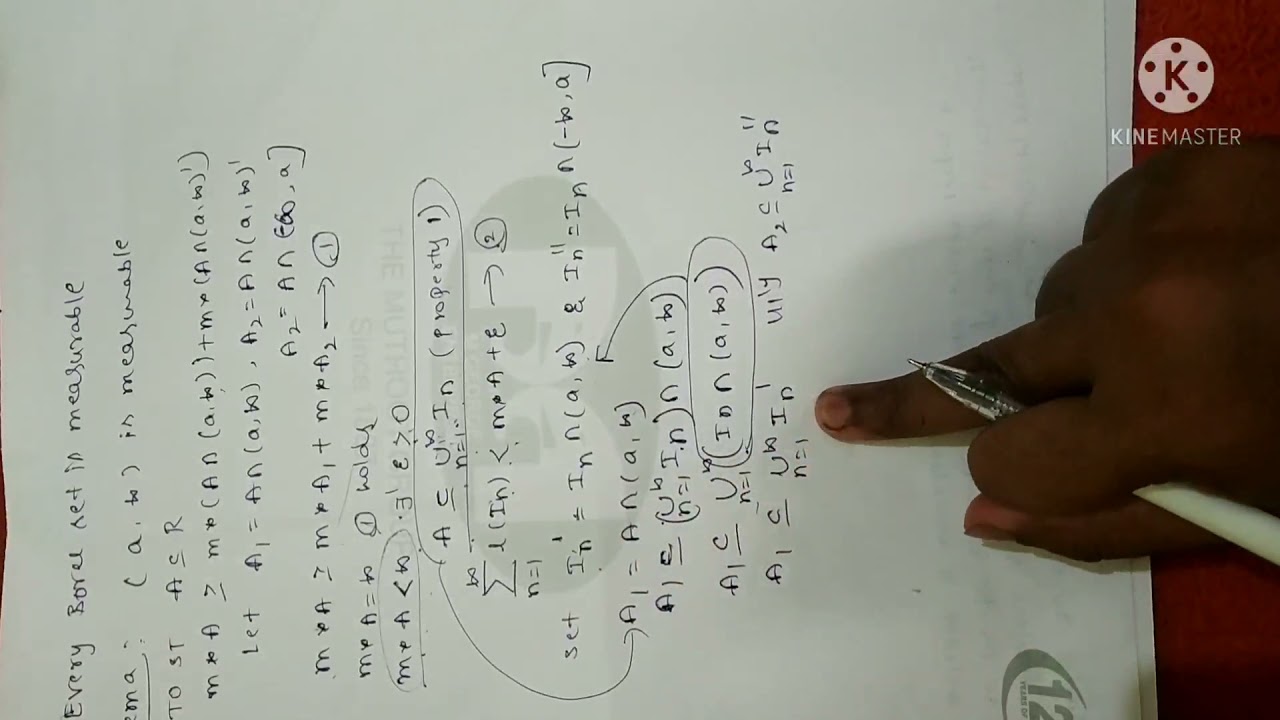 Every Borel set is measurable
ema: (a, ∞) is measurable
TO ST A ⊆ R
m*A ≥ m*(A∩(a,∞)) + m*(A∩(a,∞)')
Let A₁ = A∩(a,∞), A₂ = A∩(a,∞)'
A₂ = A∩(-∞, a]
m*A ≥ m*A₁ + m*A₂ → ①
m*A = ∞ ① holds
m*A < ∞. ∃' ε > 0
A ⊆ ∪ₙ₌₁^∞ Iₙ (property 1)
∑ₙ₌₁^∞ l(Iₙ) < m*A + ε → ②
set Iₙ' = Iₙ∩(a,∞) & Iₙ'' = Iₙ∩(-∞, a]
A₁ = A∩(a,∞)
A₁ ⊆ (∪ₙ₌₁^∞ Iₙ)∩(a,∞)
A₁ ⊆ ∪ₙ₌₁^∞ (Iₙ∩(a,∞))
A₁ ⊆ ∪ₙ₌₁^∞ Iₙ' III'ly A₂ ⊆ ∪ₙ₌₁^∞ Iₙ''
THE MUTHO
Since 1
12
YEARS OF
K
KINEMASTER